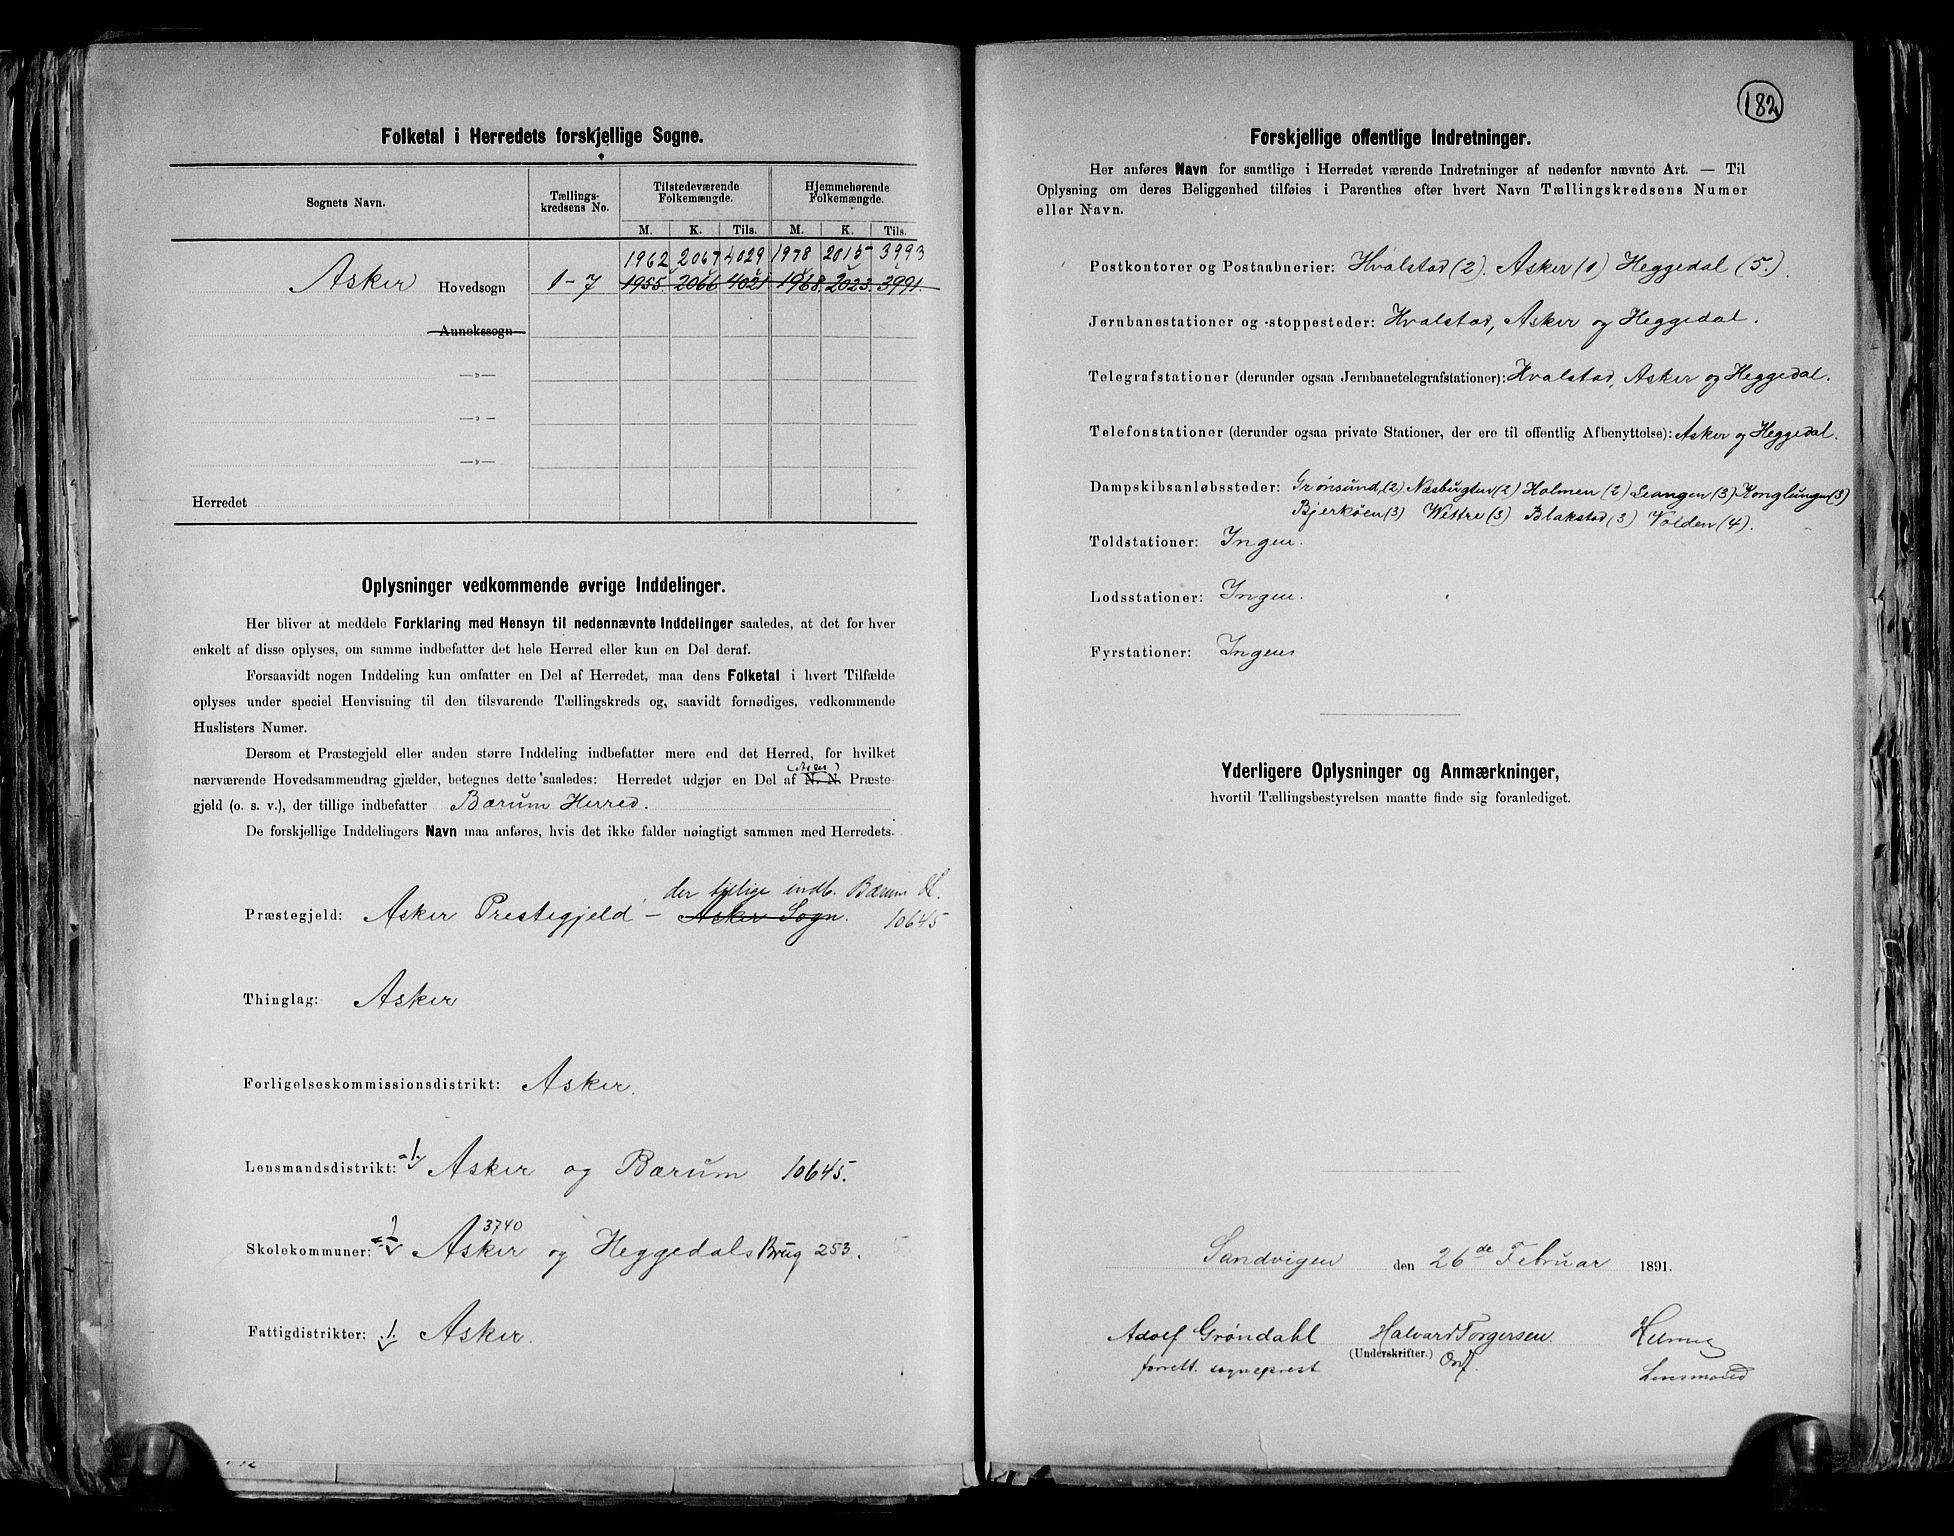 Folketal i Herredets forskjellige Sogne.
Sognets Navn. Tællings-kredsens No. Tilstedeværende Folkemængde. Hjemmehørende Folkemængde.
M. K. Tils. M. K. Tils.
1962 2067 4029 1978 2015 3993
Asker Hovedsogn 1-7 1955. 2066 4021 1968. 2023. 3991.
Annekssogn
—»—
—»—
—»—
Herredet
Oplysninger vedkommende øvrige Inddelinger.
Her bliver at meddele Forklaring med Hensyn til nedennævnte Inddelinger saaledes, at det for hver
enkelt af disse oplyses, om samme indbefatter det hele Herred eller kun en Del deraf.
Forsaavidt nogen Inddeling kun omfatter en Del af Herredet, maa dens Folketal i hvert Tilfælde
oplyses under speciel Henvisning til den tilsvarende Tællingskreds og, saavidt fornødiges, vedkommende
Huslisters Numer.
Dersom et Præstegjeld eller anden større Inddeling indbefatter mere end det Herred, for hvilket
nærværende Hovedsammendrag gjælder, betegnes dette saaledes: Herredet udgjør en Del af N. N. Præste-
gjeld (o. s. v.), der tillige indbefatter Bærum Herred.
De forskjellige Inddelingers Navn maa anføres, hvis det ikke falder nøiagtigt sammen med Herredets.
der tillige indb. Bærum H.
Præstegjeld: Asker Prestegjeld — Asker Sogn. 10645
Thinglag: Asker
Forligelseskommissionsdistrikt: Asker.
Lensmandsdistrikt: 1. Asker og Bærum 10645.
3740
Skolekommuner: Asker og Heggedals Brug 253.
Fattigdistrikter: 1. Asker.
182
Forskjellige offentlige Indretninger.
Her anføres Navn for samtlige i Herredet værende Indretninger af nedenfor nævnte Art. — Til
Oplysning om deres Beliggenhed tilføies i Parenthes efter hvert Navn Tællingskredsens Numer
eller Navn.
Postkontorer og Postaabnerier: Hvalstad (2). Asker (1) Heggedal (5.).
Jernbanestationer og -stoppesteder: Hvalstad, Asker og Heggedal.
Telegrafstationer (derunder ogsaa Jernbanetelegrafstationer): Hvalstad, Asker og Heggedal.
Telefonstationer (derunder ogsaa private Stationer, der ere til offentlig Afbenyttelse): Asker og Heggedal.
Dampskibsanløbssteder: Grønsund, (2) Næsbugten (2) Holmen (2) Leangen (3) Konglungen (3)
Bjerkøen (3) Wettre (3) Blakstad (3) Volden (4).
Toldstationer: Ingen.
Lodsstationer: Ingen.
Fyrstationer: Ingen
Yderligere Oplysninger og Anmærkninger,
hvortil Tællingsbestyrelsen maatte finde sig foranlediget.
Sandvigen den 26de Februar 1891.
Adolf Grøndahl Halvard Torgersen. Helmug
(Underskrifter.)
forrett. sogneprest Ordf. Lensmand